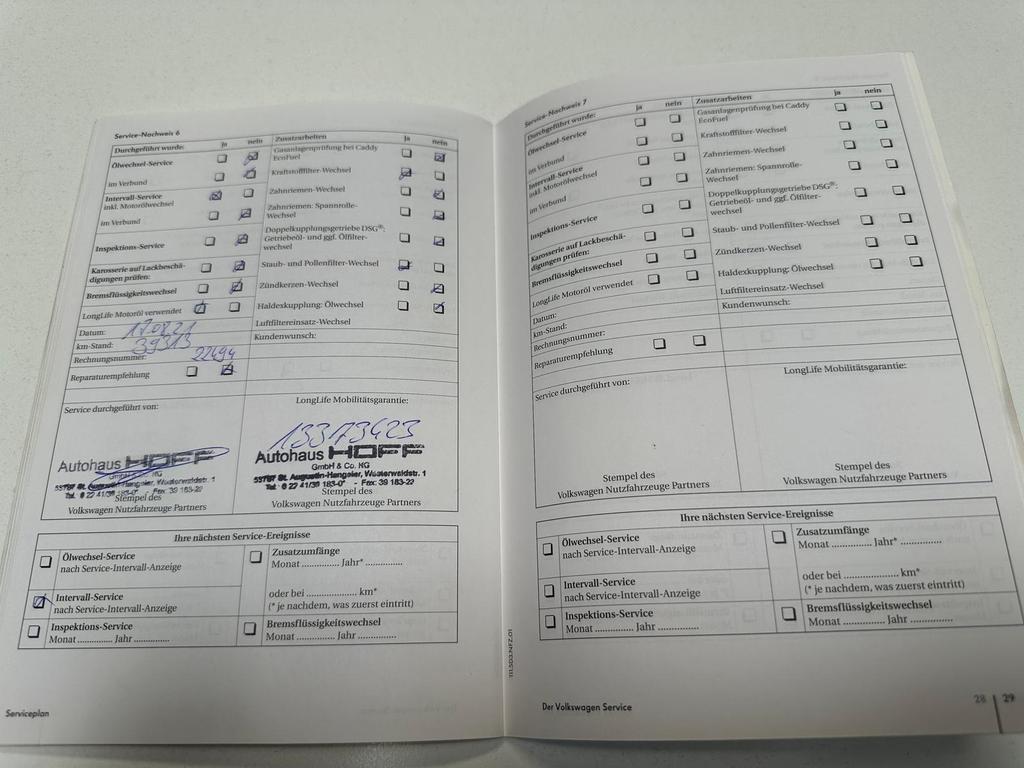 Service-Nachweis 6
Durchgeführt wurde: ja nein Zusatzarbeiten Ja nein
Ölwechsel-Service Gasanlagenprüfung bei Caddy EcoFuel
im Verbund Kraftstofffilter-Wechsel
Intervall-Service
inkl. Motorölwechsel Zahnriemen-Wechsel
im Verbund Zahnriemen: Spannrolle-
Wechsel
Inspektions-Service Doppelkupplungsgetriebe DSG®:
Getriebeöl- und ggf. Ölfilter-
wechsel
Karosserie auf Lackbeschä-
digungen prüfen: Staub- und Pollenfilter-Wechsel
Bremsflüssigkeitswechsel Zündkerzen-Wechsel
LongLife Motoröl verwendet Haldexkupplung: Ölwechsel
Datum: 17.08.21 Luftfiltereinsatz-Wechsel
km-Stand: 39313 Kundenwunsch:
Rechnungsnummer: 22494
Reparaturempfehlung
Service durchgeführt von: LongLife Mobilitätsgarantie:
13373423
Autohaus HOFF Autohaus HOFF
GmbH & Co. KG
53757 St. Augustin-Hangelar, Westerwaldstr. 1
Tel. 0 22 41/39 183-0* - Fax: 39 183-22
Stempel des
Volkswagen Nutzfahrzeuge Partners
Stempel des
Volkswagen Nutzfahrzeuge Partners
Ihre nächsten Service-Ereignisse
Ölwechsel-Service
nach Service-Intervall-Anzeige
Zusatzumfänge
Monat ............. Jahr* .............
oder bei ................. km*
(* je nachdem, was zuerst eintritt)
Intervall-Service
nach Service-Intervall-Anzeige
Inspektions-Service
Monat ............ Jahr .............
Bremsflüssigkeitswechsel
Monat ............. Jahr .............
Serviceplan
Service-Nachweis 7
Durchgeführt wurde: ja nein Zusatzarbeiten ja nein
Ölwechsel-Service Gasanlagenprüfung bei Caddy
EcoFuel
im Verbund Kraftstofffilter-Wechsel
Intervall-Service
inkl. Motorölwechsel Zahnriemen-Wechsel
im Verbund Zahnriemen: Spannrolle-
Wechsel
Inspektions-Service Doppelkupplungsgetriebe DSG®:
Getriebeöl- und ggf. Ölfilter-
wechsel
Karosserie auf Lackbeschä-
digungen prüfen: Staub- und Pollenfilter-Wechsel
Bremsflüssigkeitswechsel Zündkerzen-Wechsel
LongLife Motoröl verwendet Haldexkupplung: Ölwechsel
Datum: Luftfiltereinsatz-Wechsel
km-Stand: Kundenwunsch:
Rechnungsnummer:
Reparaturempfehlung
Service durchgeführt von: LongLife Mobilitätsgarantie:
Stempel des
Volkswagen Nutzfahrzeuge Partners
Stempel des
Volkswagen Nutzfahrzeuge Partners
Ihre nächsten Service-Ereignisse
Ölwechsel-Service
nach Service-Intervall-Anzeige
Zusatzumfänge
Monat ............. Jahr* .............
oder bei ................. km*
(* je nachdem, was zuerst eintritt)
Intervall-Service
nach Service-Intervall-Anzeige
Inspektions-Service
Monat ............. Jahr .............
Bremsflüssigkeitswechsel
Monat ............. Jahr .............
111.5D3.NFZ.01
Der Volkswagen Service
28 | 29